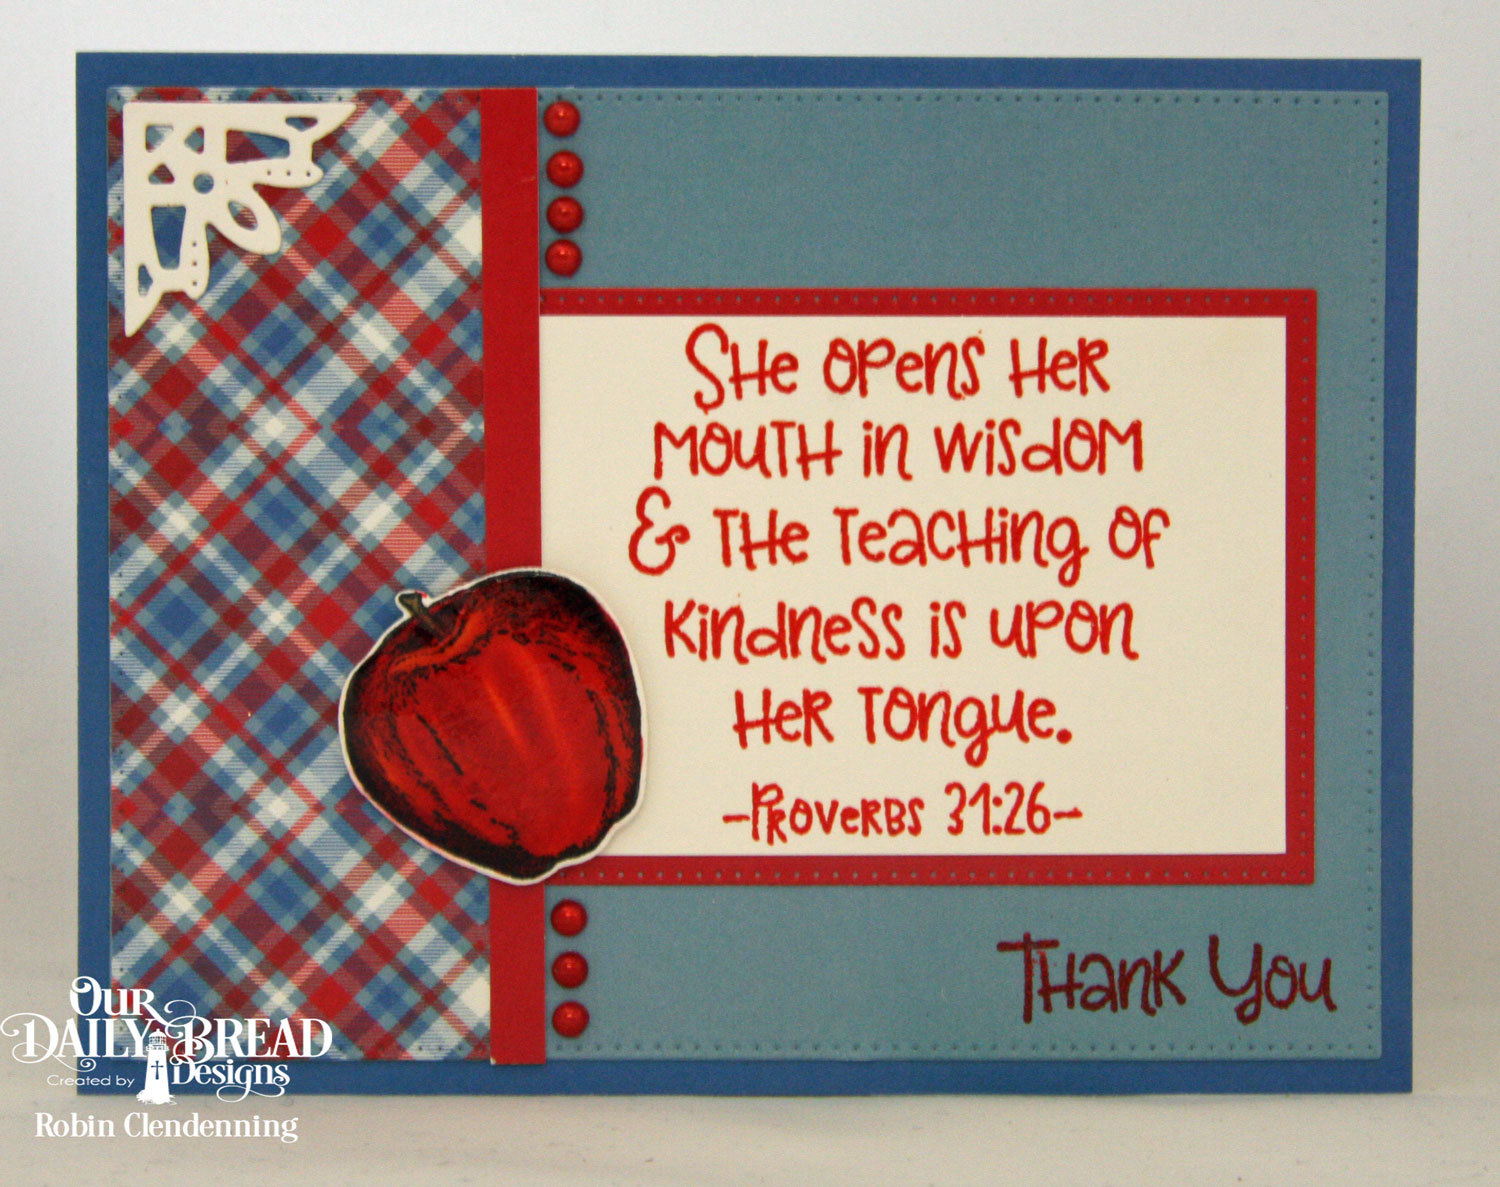 She opens her
mouth in wisdom
& the teaching of
kindness is upon
her tongue.
-Proverbs 31:26-
Thank You
Our
Daily Bread
Created by Designs
Robin Clendenning